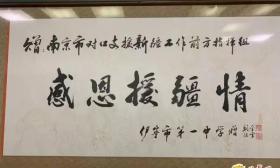 赠:南京市对口支援新疆工作前方指挥组
感恩援疆情
伊宁市第一中学赠